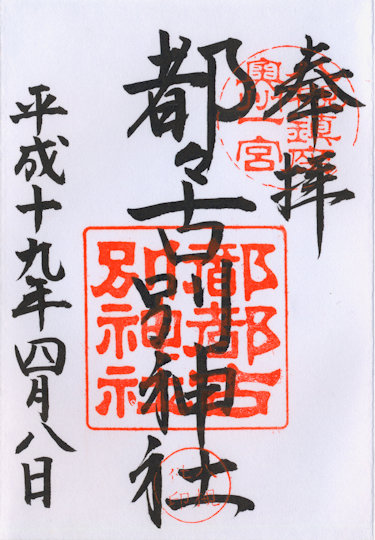 奉拝
奥州一宮
都々古別神社
都都古
別神社
平成十九年四月八日